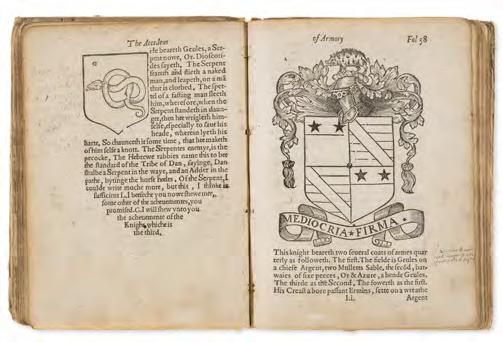 The Accedens
He beareth Geules, a Ser-
pent nowe, Or. Dioscori-
des sayeth, The Serpent
feareth and flieth a naked
man, and leapeth, on a mā
that is clothed, The spet-
tel of a fasting man sleeth
him, wherefore, when the
Serpent standeth in daun-
ger, then he wrigleth him-
selfe, especially to save his
heade, wherein lyeth his
harte. So chaunceth it some time, that he maketh
of him selfe a knott. The Serpentes enemye, is the
pecocke, The Hebrewe rabbies name this to bee
the standard of the Tribe of Dan, sayinge, Dan
shalbe a Serpent in the waye, and an Adder in the
pathe, bytinge the horse heeles, Of the Serpent, I
coulde write muche more, but this, I thinke is
sufficient L. I beseche you nowe shewe me,
some other of the atcheuementes, you
promised. G. I will shew vnto you
the atcheuemente of the
Knight, whiche is
the third.
of Armory
Fol 58
MEDIOCRIA FIRMA
This knight beareth two seueral coats of armes quar
terly as followeth. The first. The fielde is Geules on
a chiefe Argent, two Mulletts Sable, the secōd, bar-
waies of sixe peeces, Or & Azure, a bende Geules.
The thirde as the Second, The fowerth as the first.
His Creast a bore passant Ermins, sette on a wreathe
I.i.
Argent